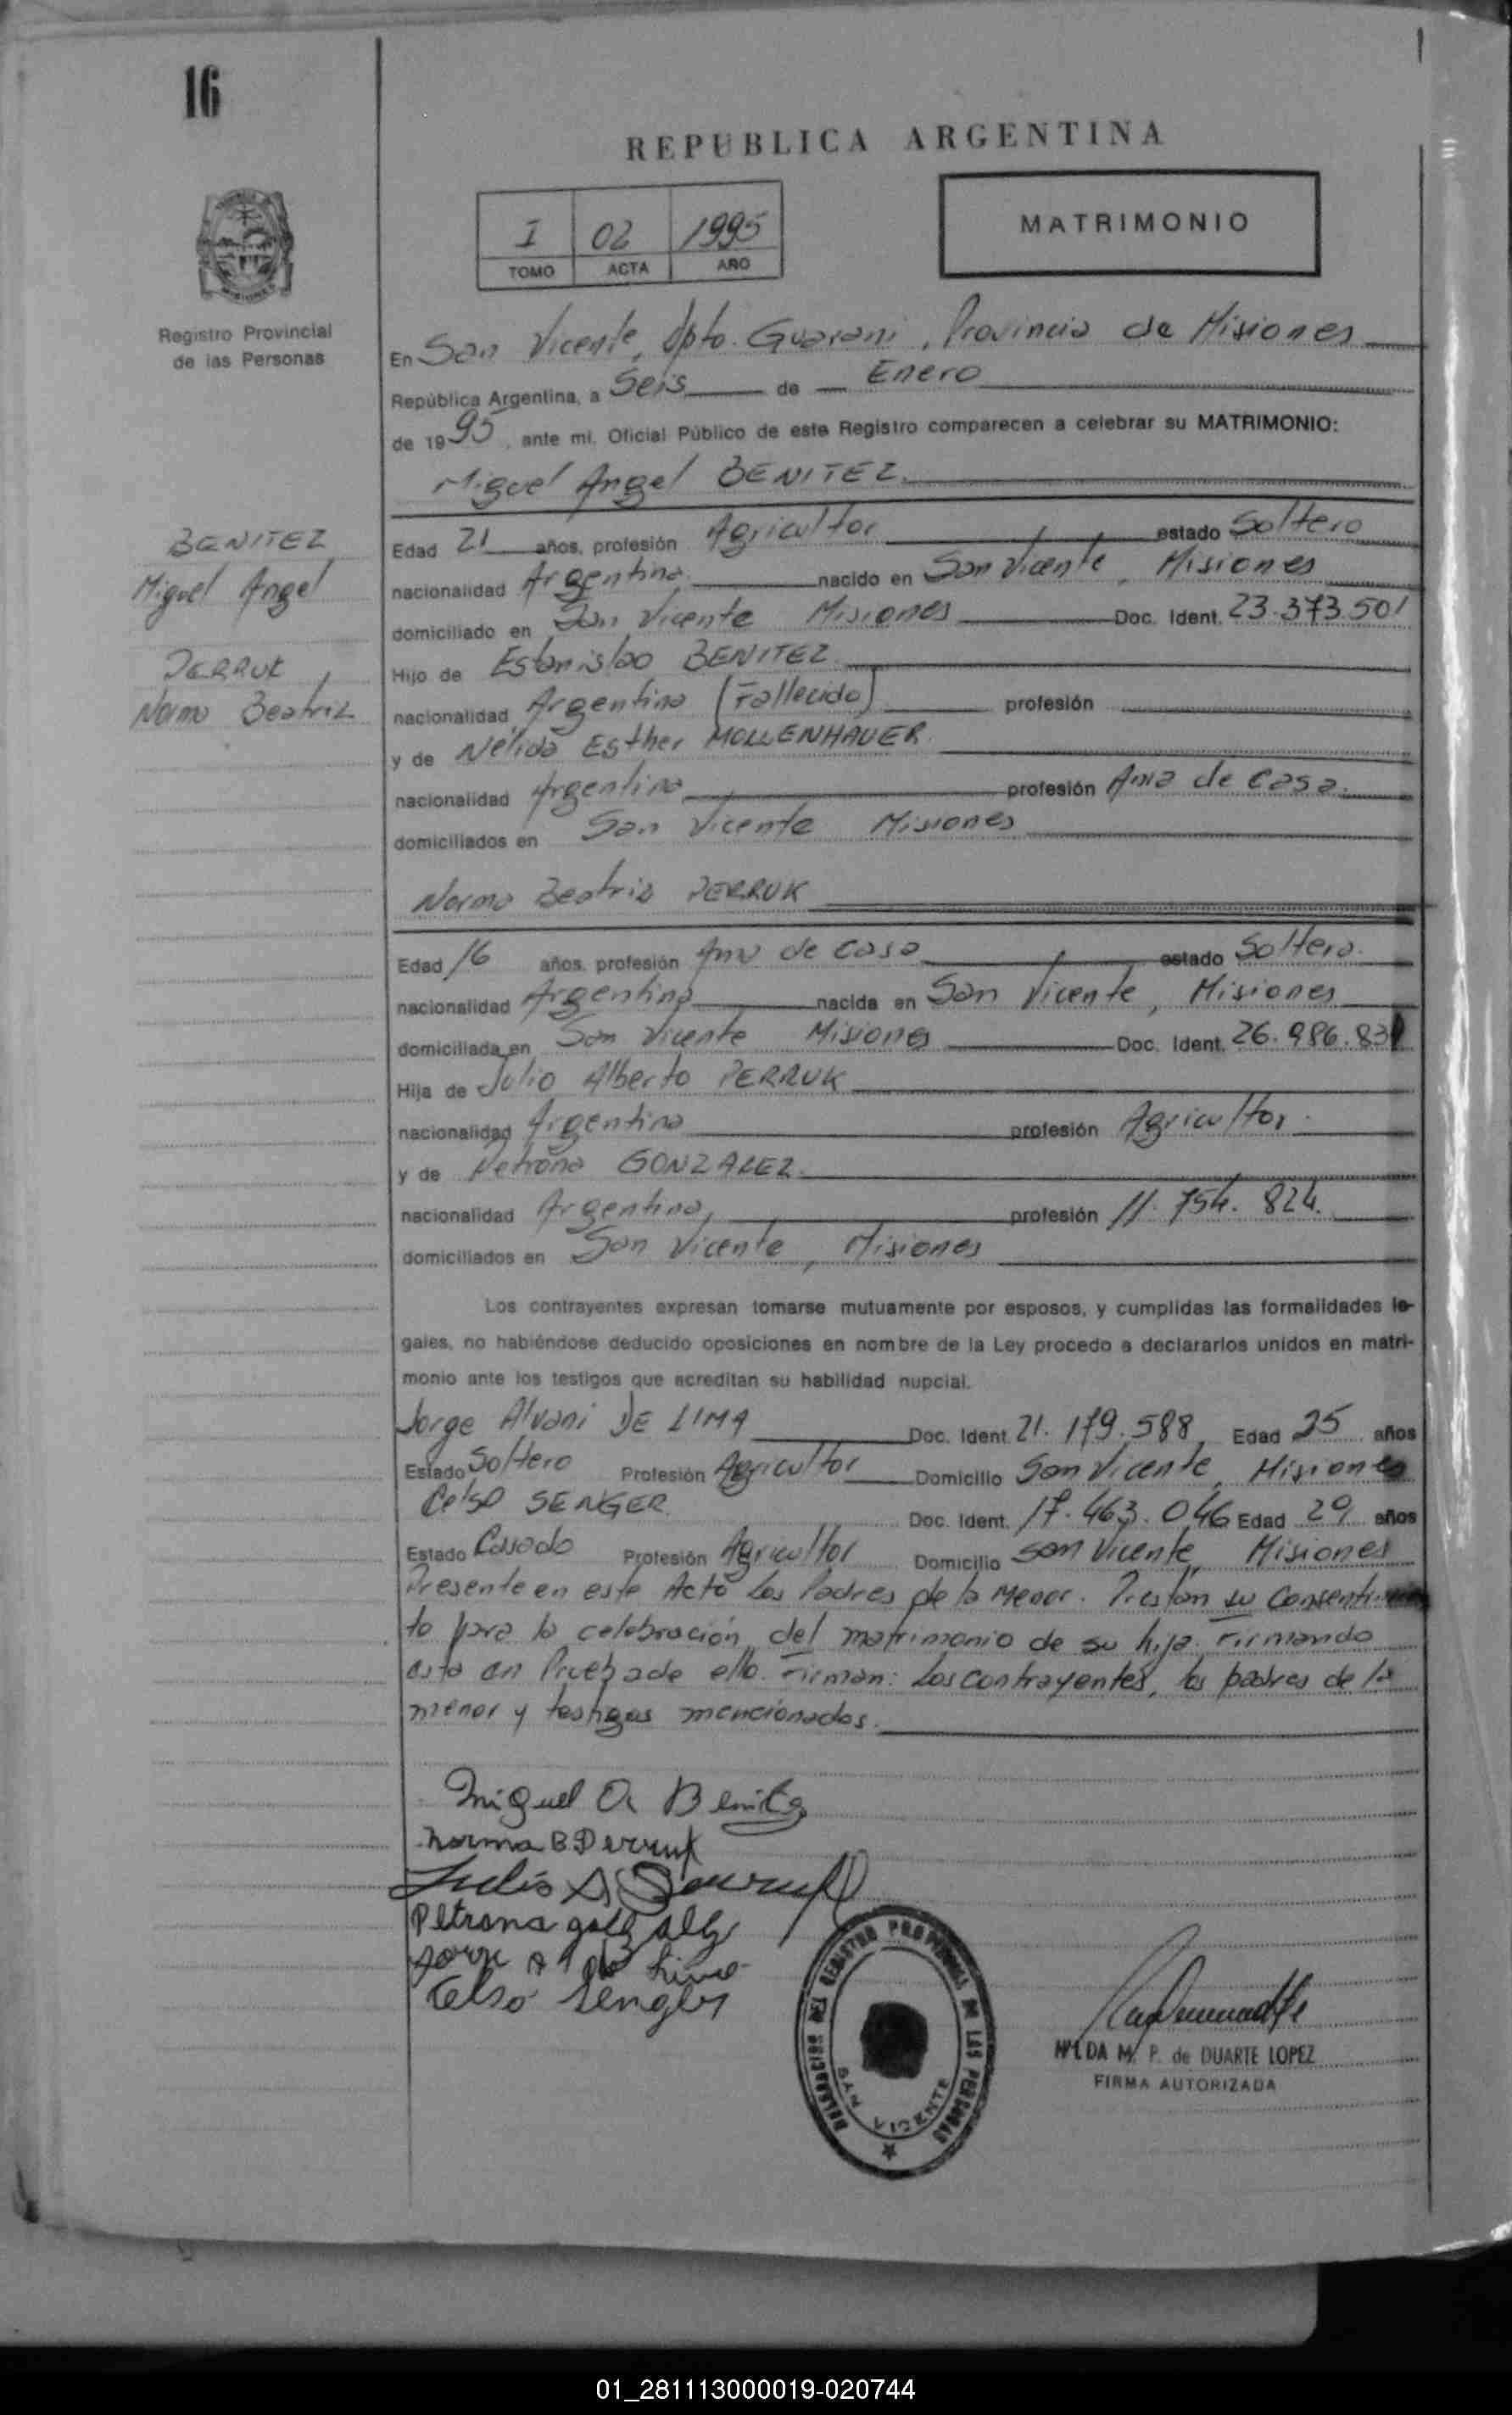 16
REPUBLICA ARGENTINA
I 02 1995
TOMO ACTA AÑO
MATRIMONIO
Registro Provincial
de las Personas
En San Vicente, Dpto. Guarani, Provincia de Misiones
República Argentina, a Seis de Enero
de 1995, ante mi, Oficial Público de este Registro comparecen a celebrar su MATRIMONIO:
Miguel Angel BENITEZ
BENITEZ
Miguel Angel
PERRUK
Norma Beatriz
Edad 21 años, profesión Agricultor estado Soltero
nacionalidad Argentina nacido en San Vicente, Misiones
domiciliado en San Vicente Misiones Doc. Ident. 23.373.501
Hijo de Estanislao BENITEZ
nacionalidad Argentina (Fallecido) profesión
y de Nélida Esther MOLLENHAUER
nacionalidad Argentina profesión Ama de Casa.
domiciliados en San Vicente Misiones
Norma Beatriz PERRUK
Edad 16 años, profesión Ama de casa estado Soltera.
nacionalidad Argentina nacida en San Vicente, Misiones
domiciliada en San Vicente Misiones Doc. Ident. 26.986.831
Hija de Julio Alberto PERRUK
nacionalidad Argentina profesión Agricultor.
y de Petrona GONZALEZ.
nacionalidad Argentina, profesión 11.754.824.
domiciliados en San Vicente, Misiones
Los contrayentes expresan tomarse mutuamente por esposos, y cumplidas las formalidades le-
gales, no habiéndose deducido oposiciones en nombre de la Ley procedo a declararlos unidos en matri-
monio ante los testigos que acreditan su habilidad nupcial.
Jorge Alvani DE LIMA Doc. Ident. 21.179.588 Edad 25 años
Estado Soltero Profesión Agricultor Domicilio San Vicente, Misiones
Celso SENGER Doc. Ident. 17.463.046 Edad 29 años
Estado Casado Profesión Agricultor Domicilio San Vicente, Misiones
Presente en este Acto los Padres de la Menor. Prestan su Consentimien
to para la celebración del matrimonio de su hija. Firmando
esta en Prueba de ello. Firman: Los contrayentes, los padres de la
menor y testigos mencionados.
Miguel A Benitez
Norma B Perruk
Julio A Perruk
Petrona
de Lima
Celso Senger
DELEGACION DEL REGISTRO PROVINCIAL DE LAS PERSONAS
SAN VICENTE
HILDA M. P. de DUARTE LOPEZ
FIRMA AUTORIZADA
01_281113000019-020744